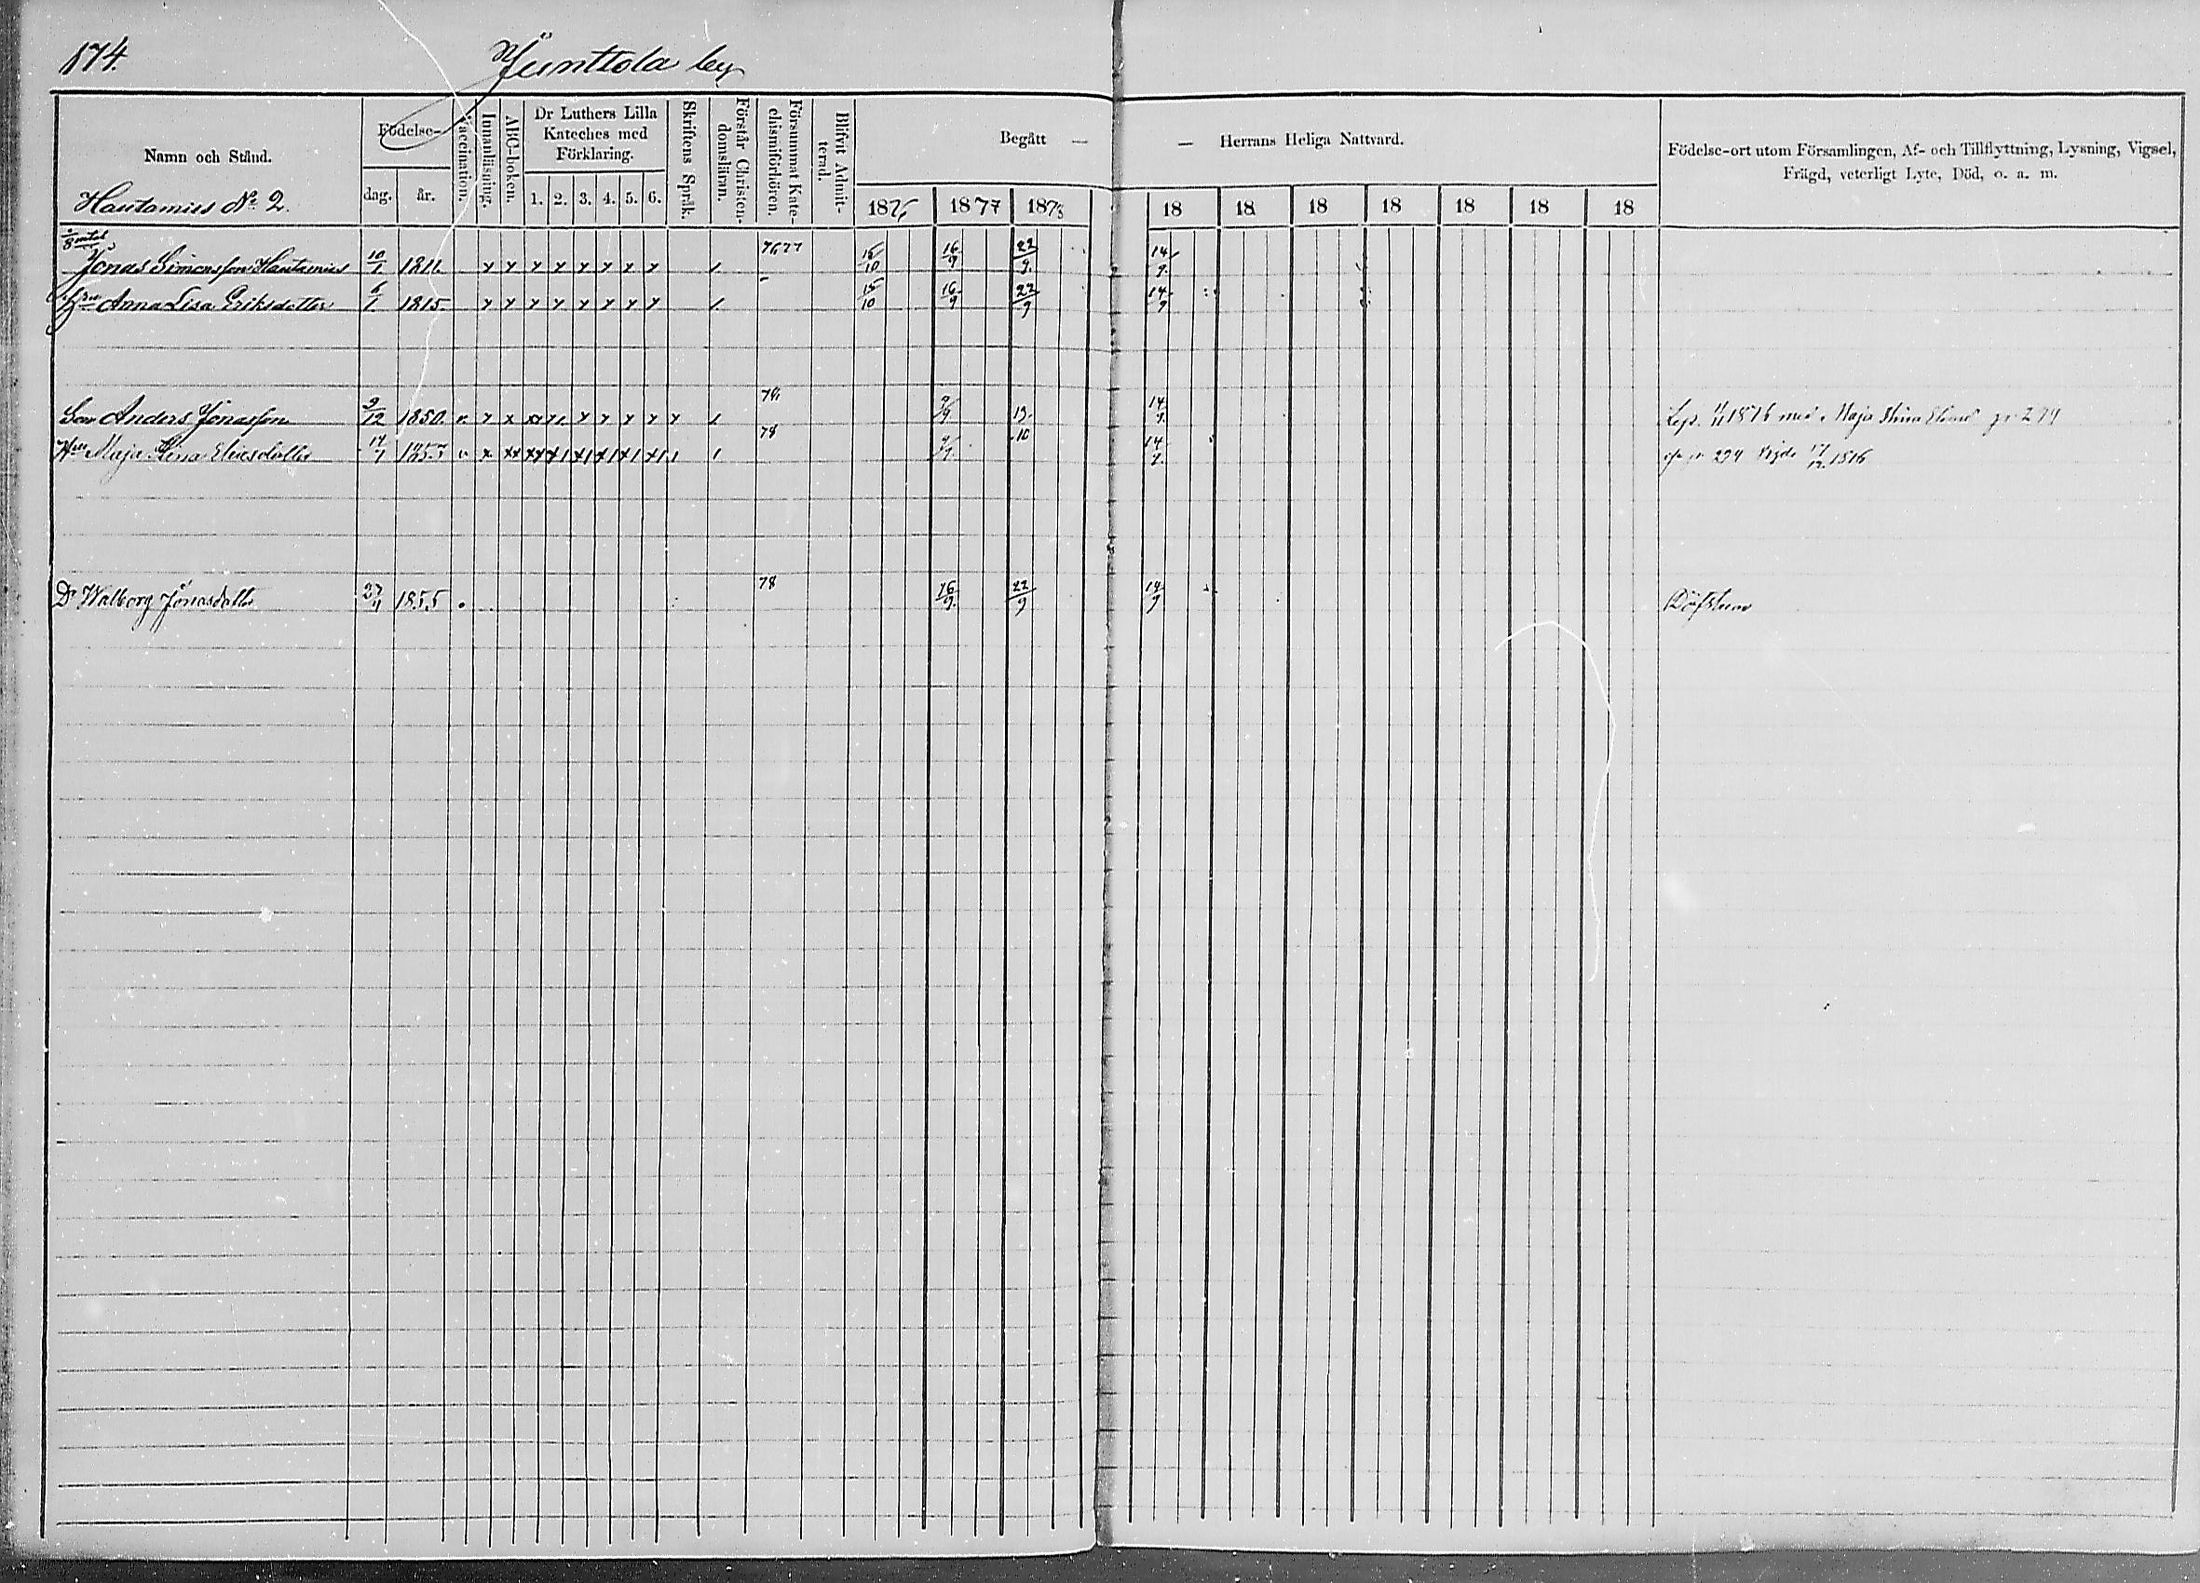 174.
Junttola by
Namn och Stånd.
Födelse-
dag.
år.
Vaccination.
Innanläsning.
ABC-boken.
Dr Luthers Lilla
Kateches med
Förklaring.
1. 2. 3. 4. 5. 6.
Skriftens Språk.
Förstår Christen-
domsläran.
Försummat Kate-
chismiförhören.
Blifvit Admit-
terad.
Begått — — Herrans Heliga Nattvard.
1876 1877 1878 18 18 18 18 18 18 18
Födelse-ort utom Församlingen, Af- och Tillflyttning, Lysning, Vigsel,
Frägd, veterligt Lyte, Död, o. a. m.
Hautamies No 2.
Jonas Simonsson Hautamies 10/1 1811. 76 77 15/10 16/9 22/9. 14/9.
Anna Lisa Eriksdotter 6/1 1815. 15/10 16/9 22/9 14/9
Son Anders Jonasson 9/12 1850. 78 14/9. 1876 med Maja Stina
Hu Maja Stina Eliasdotter 78 14/9. 294 Vigde 17/12 1876
Dr Walborg Jonasdotter 27/4 1855 78 16/9. 22/9 14/9 Döfstum